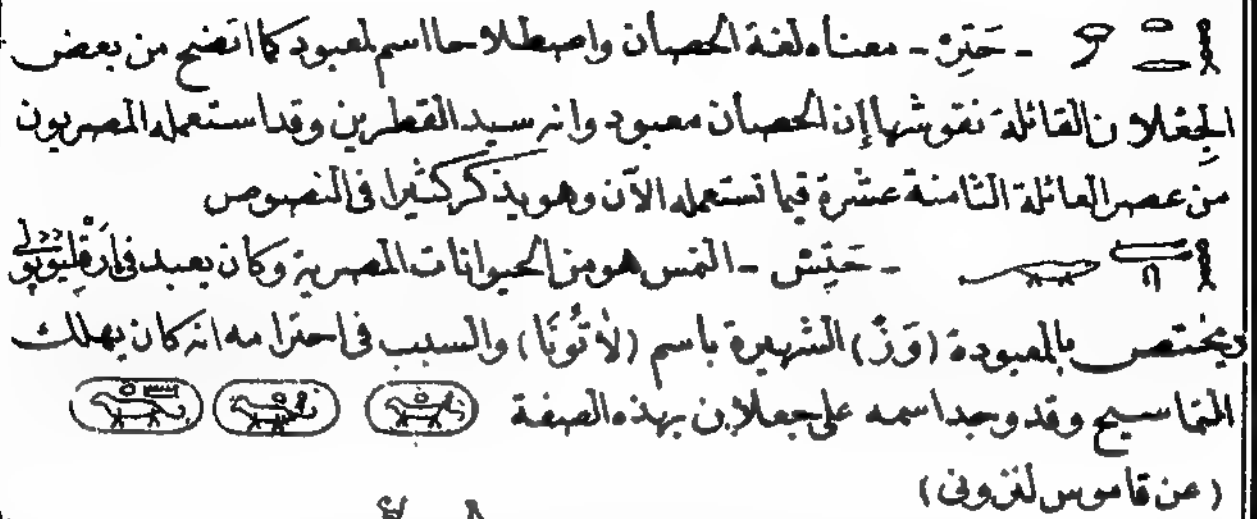 - حَتِرْ - معناه لغة الحصان واصطلاحا اسم لمعبود كما اتضح من بعض
الجِعْلان القائلة نقوشها إن الحصان معبود وانه سيد القطرين وقد استعمله المصريون
من عصر العائلة الثامنة عشرة فيما تستعمله الآن وهو يذكر كثيرا فى النصوص
- حَتِش - النمس هو من الحيوانات المصرية وكان يعبد فى
ويختص بالمعبودة (وَزْ) الشهيرة باسم (لاَتُونَا) والسبب فى احترامه انه كان يهلك
التماسيح وقد وجد اسمه على جعلان بهذه الصفة
(عن قاموس لنزونى)